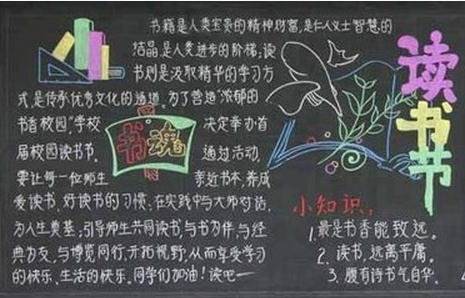 书籍是人类宝贵的精神财富,是仁人义士智慧的
结晶,是人类进步的阶梯;读
书则是汲取精华的学习方
式,是传承优秀文化的通道。为了营造“浓郁的
书香校园”,学校 决定举办首
届校园读书节。 通过活动,
要让每一位师生 亲近书本,养成
爱读书、好读书的习惯;在实践中与大师对话,
为人生奠基;引导师生共同读书,与书为伴,与经
典为友,与博览同行,开拓视野,从而享受学习
的快乐、生活的快乐。同学们加油!读吧一
书魂
读书节
小知识:
1.最是书香能致远。
2. 读书,远离平庸。
3. 腹有诗书气自华。